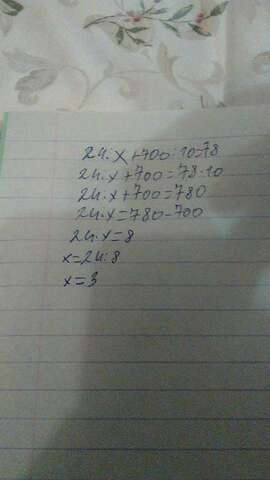 24:x+700:10=78
24:x+700=78·10
24:x+700=780
24:x=780-700
24:x=8
x=24:8
x=3